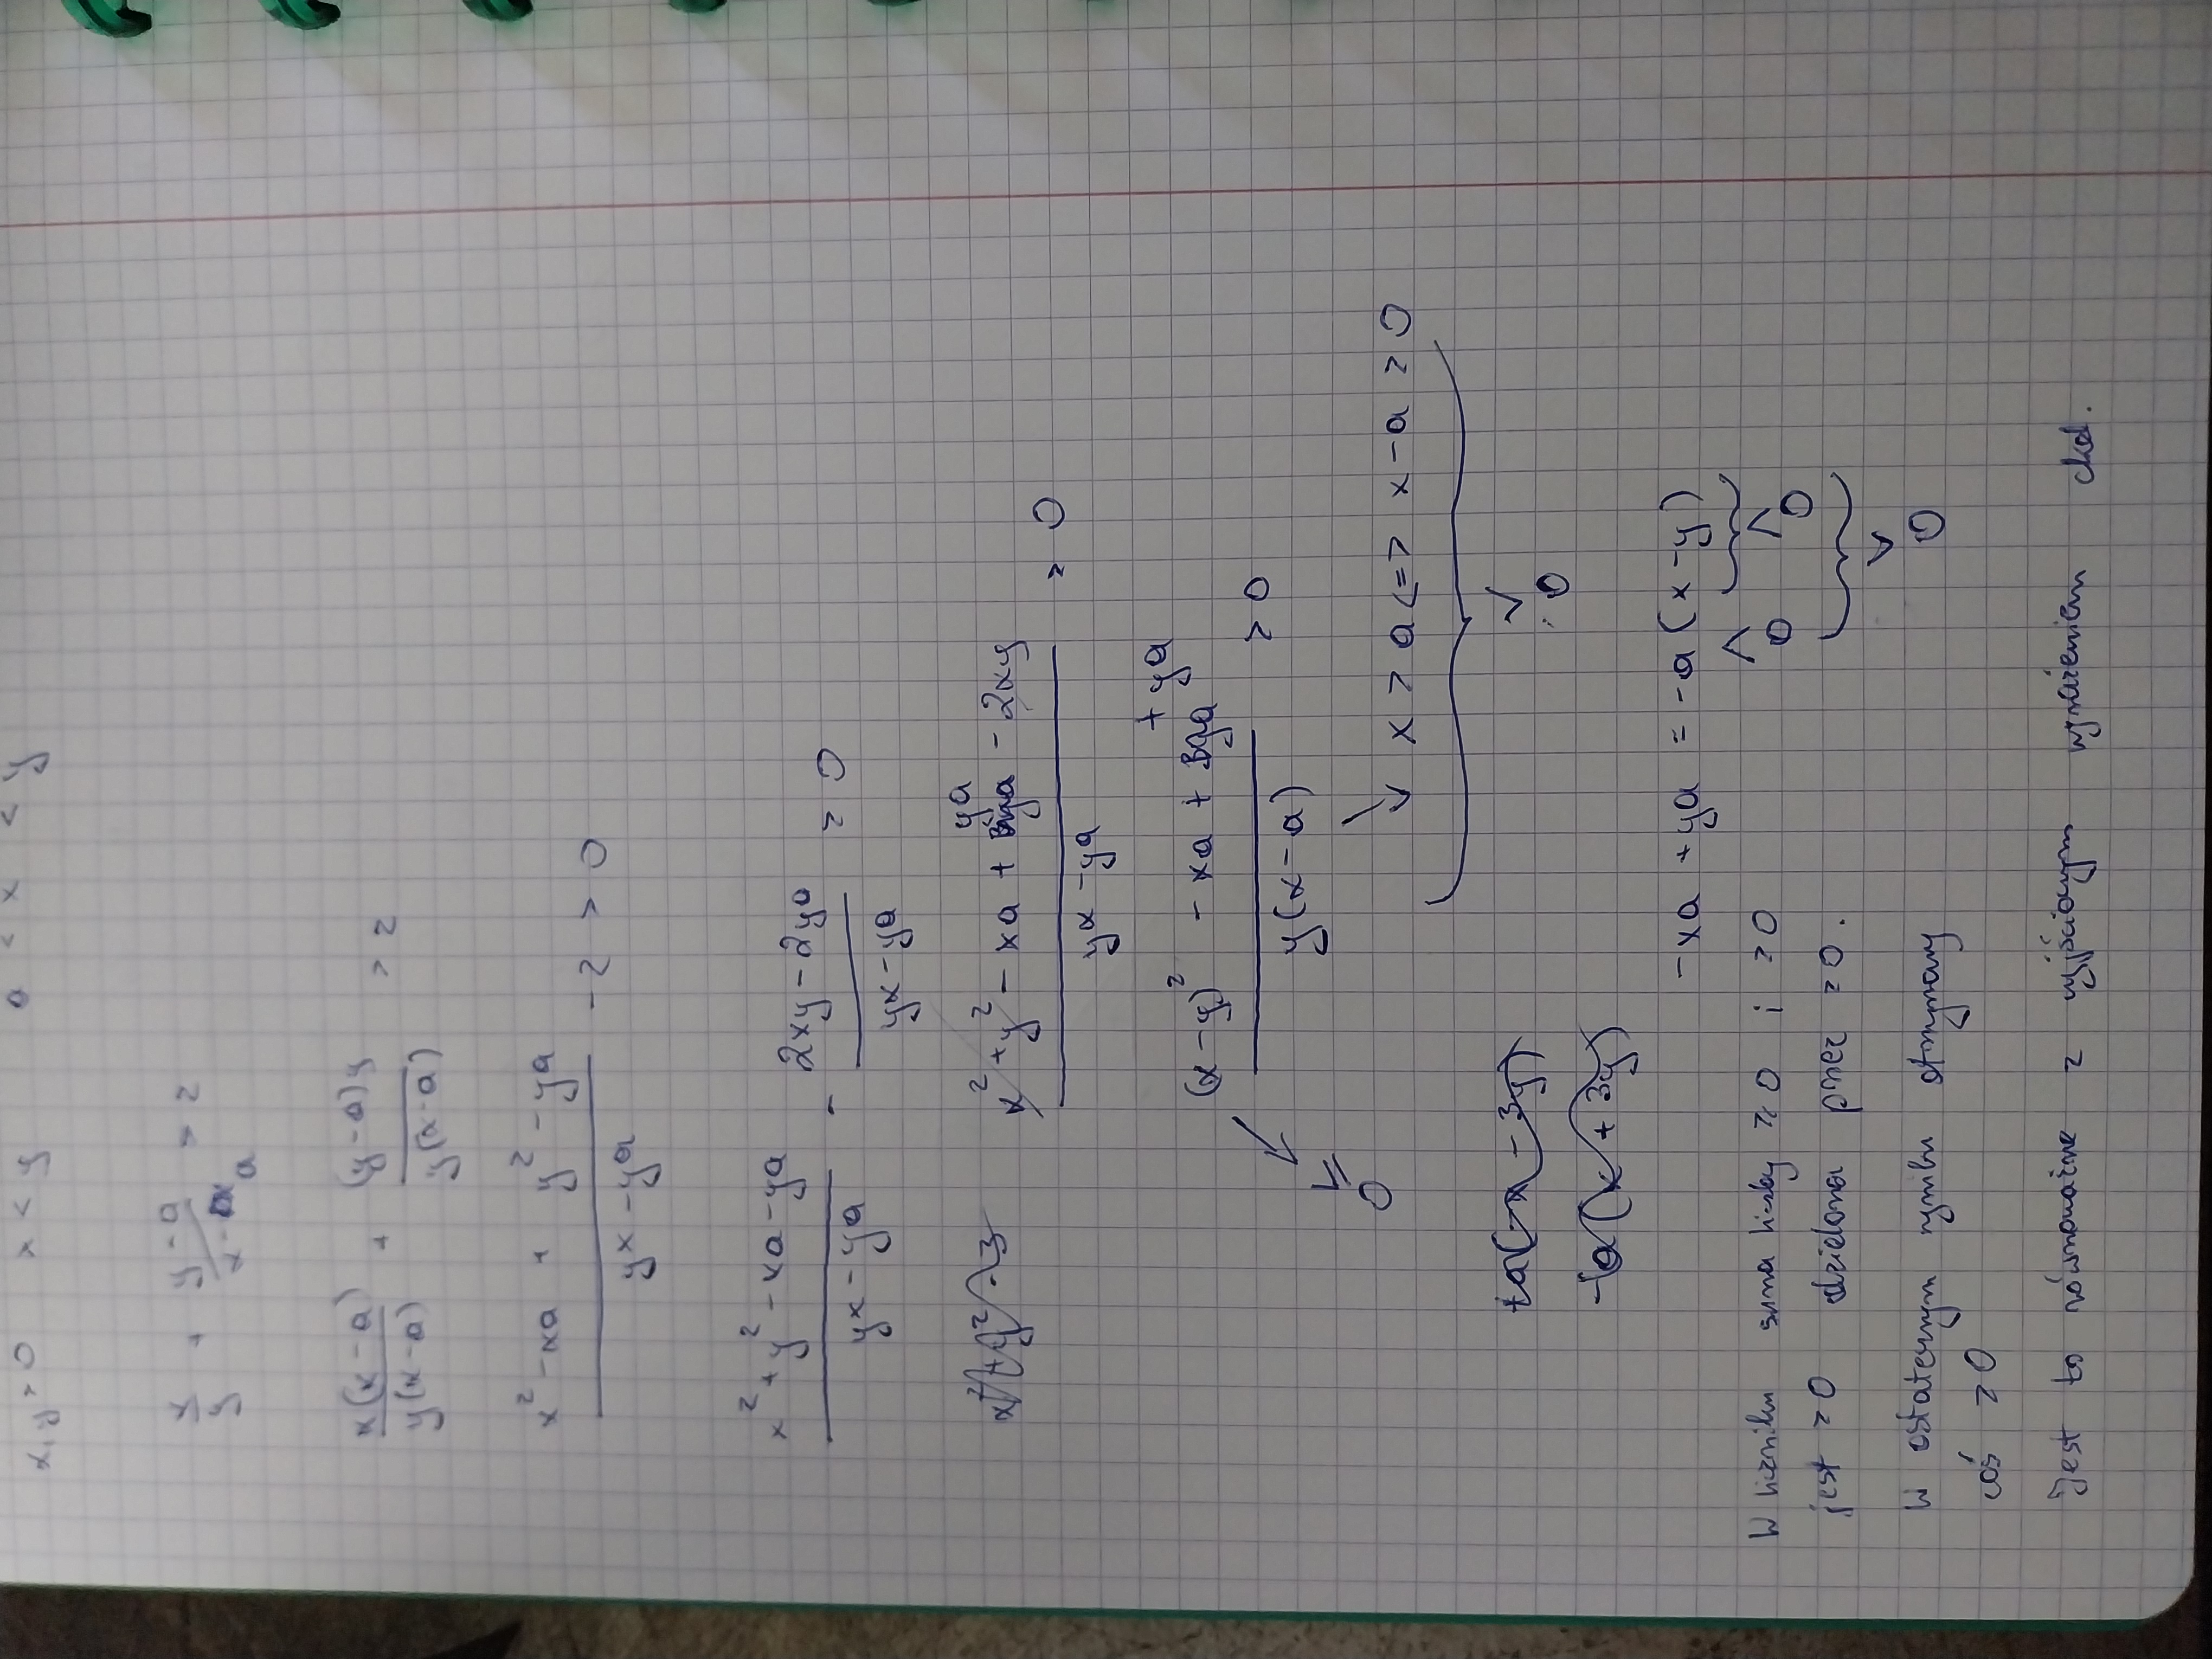 x, y > 0   x < y   a < x < y
x/y + (y-a)/(x-a) > 2
x(x-a)/y(x-a) + (y-a)y/y(x-a) > 2
(x² - xa + y² - ya)/(yx - ya) - 2 > 0
(x² + y² - xa - ya)/(yx - ya) - (2xy - 2ya)/(yx - ya) > 0
(x² + y² - xa + ya - 2xy)/(yx - ya) > 0
((x-y)² - xa + ya)/(y(x-a)) > 0
≥ 0
x > a <=> x - a > 0
> 0
+a(-x - 3y)
-a(x + 3y)
-xa + ya = -a(x-y)
< 0   < 0
> 0
W liczniku suma liczby ≥ 0 i > 0
jest > 0 dzielona przez > 0.
W ostatecznym wyniku otrzymamy
coś > 0
Jest to równoważne z wyjściowym wyrażeniem ckd.